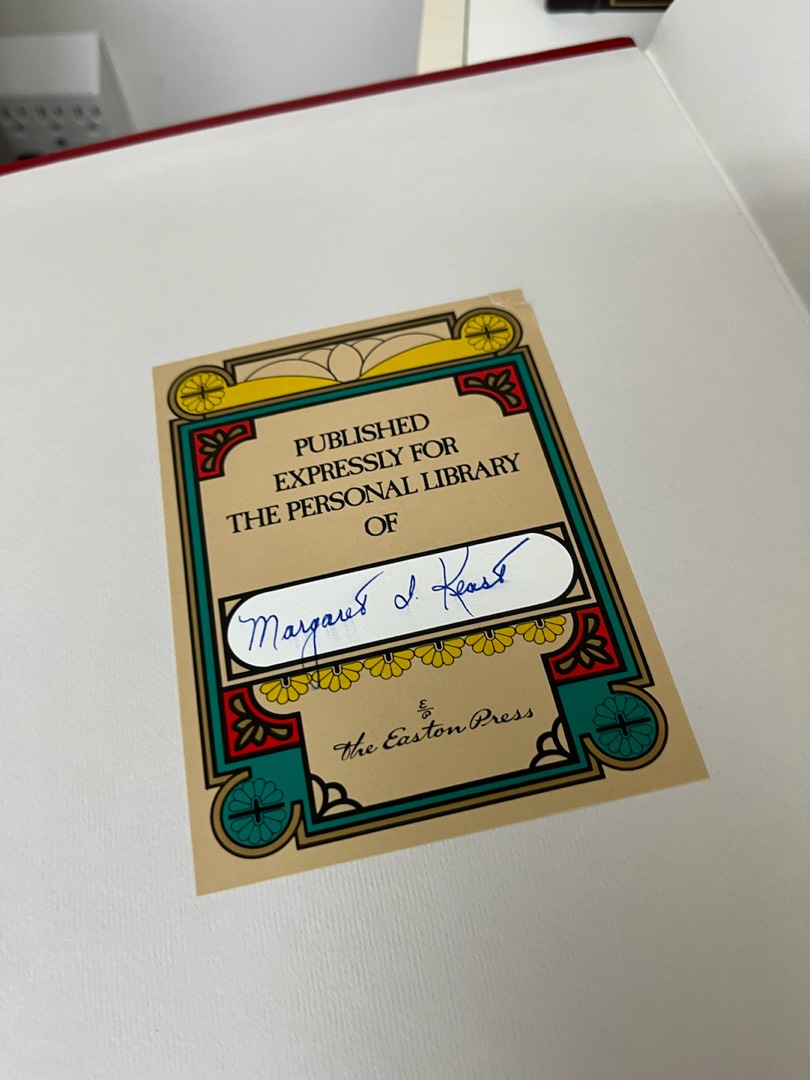 PUBLISHED
EXPRESSLY FOR
THE PERSONAL LIBRARY
OF
Margaret I. Keast
E
P
the Easton Press